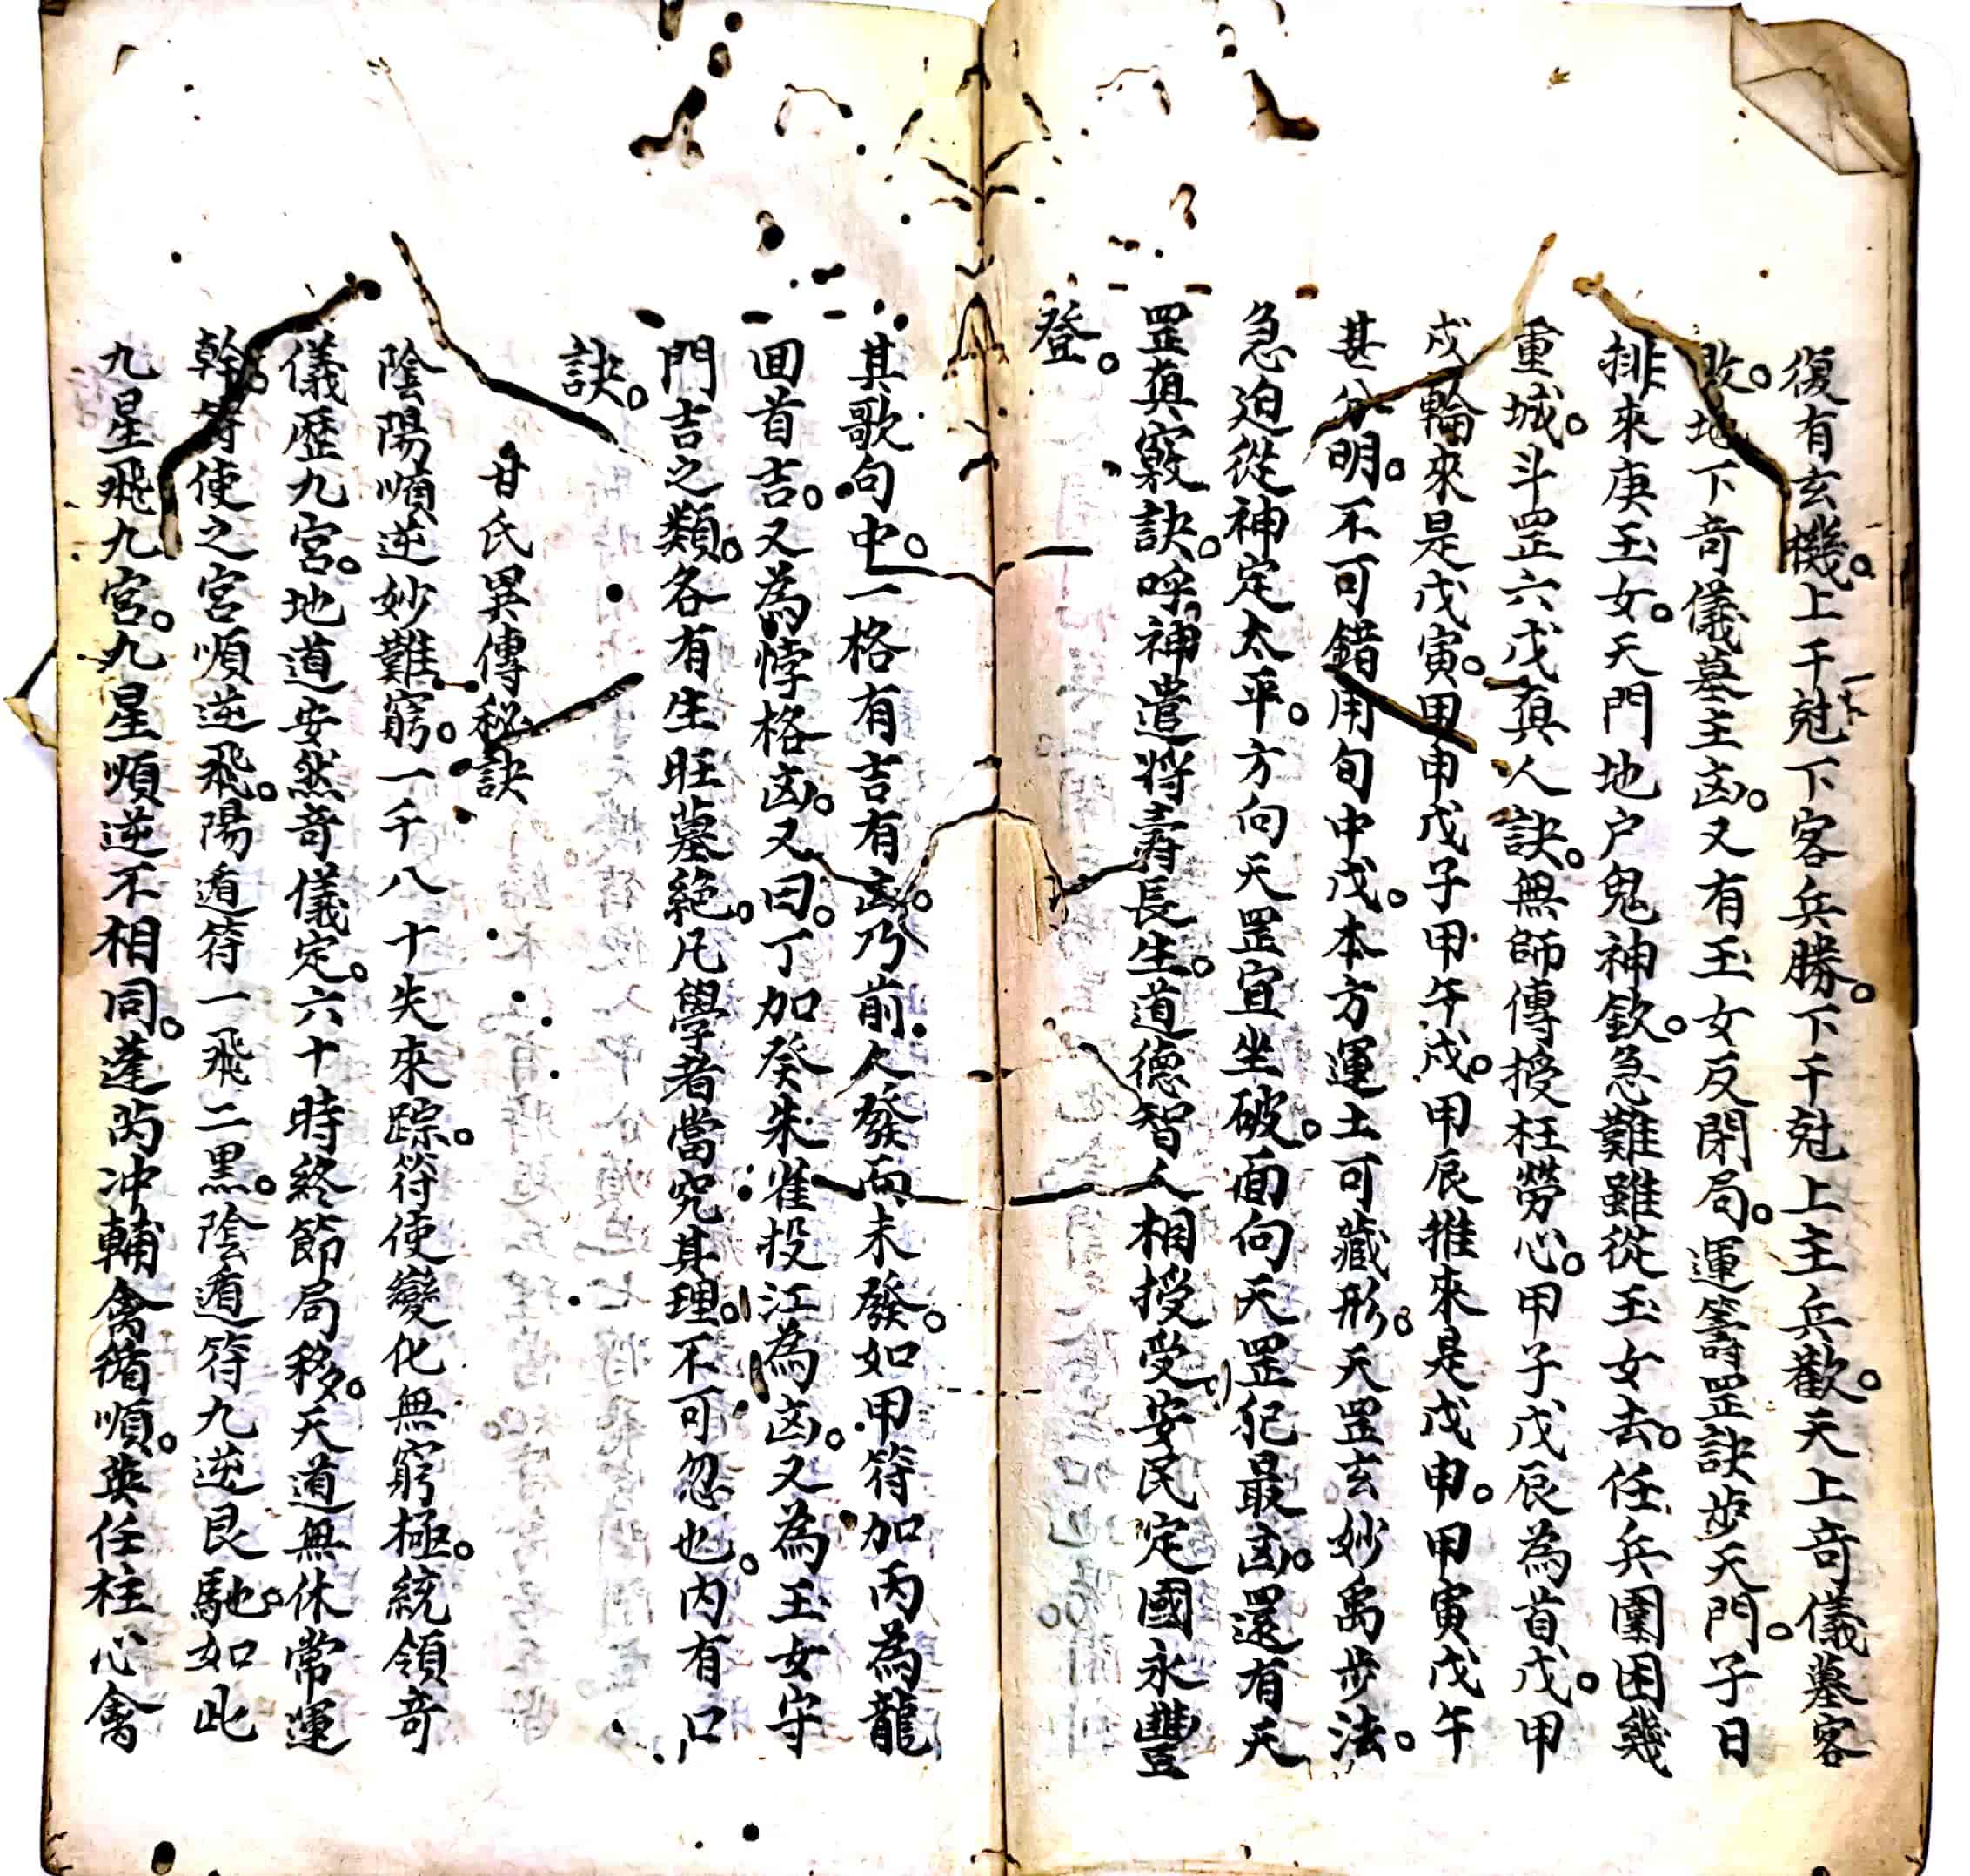 復有玄機。上干尅下客兵勝。下干尅上主兵歡。天上竒儀墓客
敗。地下竒儀墓主凶。又有玉女反閉局。運籌罡訣步天門。子日
排來庚玉女。天門地户鬼神欽。急難雖從玉女去。任兵圍困幾
重城。斗罡六戊真人訣。無師傳授枉勞心。甲子戊辰為首戊。甲
戌輪來是戊寅。甲申戊子甲午戌。甲辰推來是戊申。甲寅戊午
甚分明。不可錯用旬中戊。本方運土可藏形。天罡玄妙禹步法。
急迫從神定太平。方向天罡宜坐破。面向天罡犯最凶。還有天
罡真竅訣。呼神遣將壽長生。道德智人相授受。安民定國永豐
登。
其歌句中。一格有吉有凶。乃前人發而未發。如甲符加丙為龍
囬首吉。又為悖格凶。又曰。丁加癸朱雀投江為凶。又為玉女守
門吉之類。各有生旺墓絕。凡學者當究其理。不可忽也。内有口
訣。
甘氏異傳秘訣
陰陽順逆妙難窮。一千八十失來踪。符使變化無窮極。統領竒
儀歷九宮。地道安然竒儀定。六十時終節局移。天道無休常運
幹。符使之宮順逆飛。陽遁符一飛二黑。陰遁符九逆艮馳。如此
九星飛九宮。九星順逆不相同。蓬芮冲輔禽循順。英任柱心禽